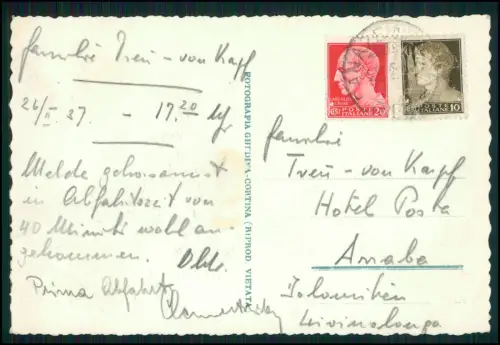 Familie Treu - von Kapf
26/II 37. - 17.20 Uhr
Melde gehorsamst
in Abfahrtszeit von
40 Minuten wohl an-
gekommen.
Prima Abfahrt
FOTOGRAFIA GHEDINA - CORTINA (RIPROD VIETATA)
POSTE ITALIANE 20
POSTE ITALIANE 10
Familie
Treu - von Kapf
Hotel Posta
Arraba
Dolomiten
Livinalonga